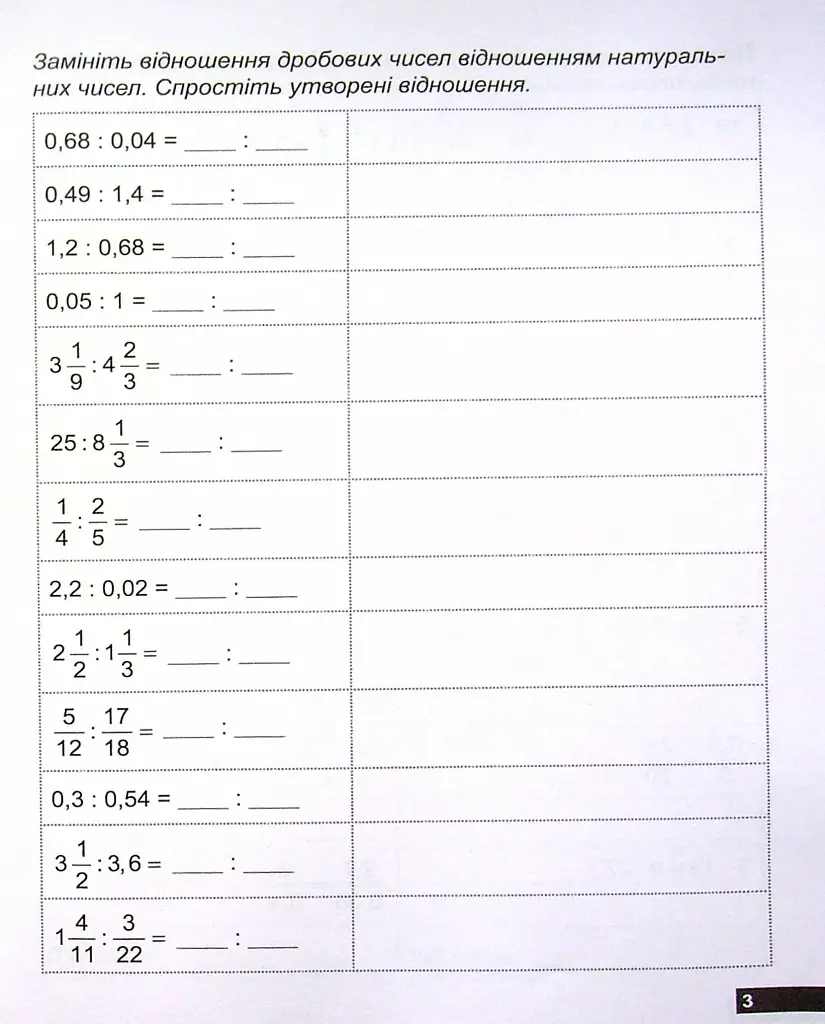 Замініть відношення дробових чисел відношенням натураль-
них чисел. Спростіть утворені відношення.
0,68 : 0,04 = ____ : ____
0,49 : 1,4 = ____ : ____
1,2 : 0,68 = ____ : ____
0,05 : 1 = ____ : ____
3 1/9 : 4 2/3 = ____ : ____
25 : 8 1/3 = ____ : ____
1/4 : 2/5 = ____ : ____
2,2 : 0,02 = ____ : ____
2 1/2 : 1 1/3 = ____ : ____
5/12 : 17/18 = ____ : ____
0,3 : 0,54 = ____ : ____
3 1/2 : 3,6 = ____ : ____
1 4/11 : 3/22 = ____ : ____
3